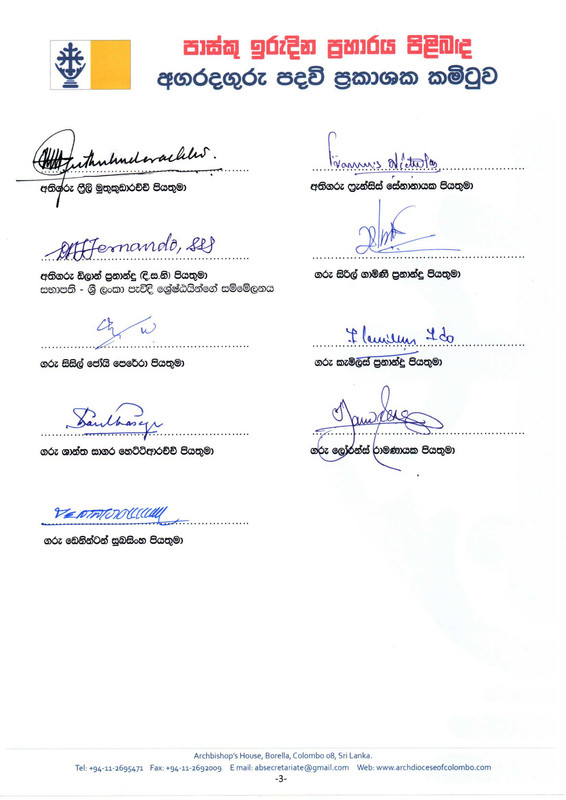 පාස්කු ඉරුදින ප්‍රහාරය පිළිබඳ
අගරදගුරු පදවි ප්‍රකාශක කමිටුව
අතිගරු ෆ්‍රීලි මුතුකුඩාරච්චි පියතුමා
අතිගරු ෆ්‍රැන්සිස් සේනානායක පියතුමා
Fernando, SSS
අතිගරු ඩිලාන් ප්‍රනාන්දු (දි.ස.නි) පියතුමා
සභාපති - ශ්‍රී ලංකා පැවිදි ශ්‍රේෂ්ඨයින්ගේ සම්මේලනය
ගරු සිරිල් ගාමිණී ප්‍රනාන්දු පියතුමා
ගරු සිසිල් ජෝයි පෙරේරා පියතුමා
ගරු කැමිලස් ප්‍රනාන්දු පියතුමා
ගරු ශාන්ත සාගර හෙට්ටිආරච්චි පියතුමා
ගරු ලෝරන්ස් රාමණායක පියතුමා
ගරු ඩෙනින්ටන් සුබසිංහ පියතුමා
Archbishop's House, Borella, Colombo 08, Sri Lanka.
Tel: +94-11-2695471 Fax: +94-11-2692009 E mail: absecretariate@gmail.com Web: www.archdioceseofcolombo.com
-3-